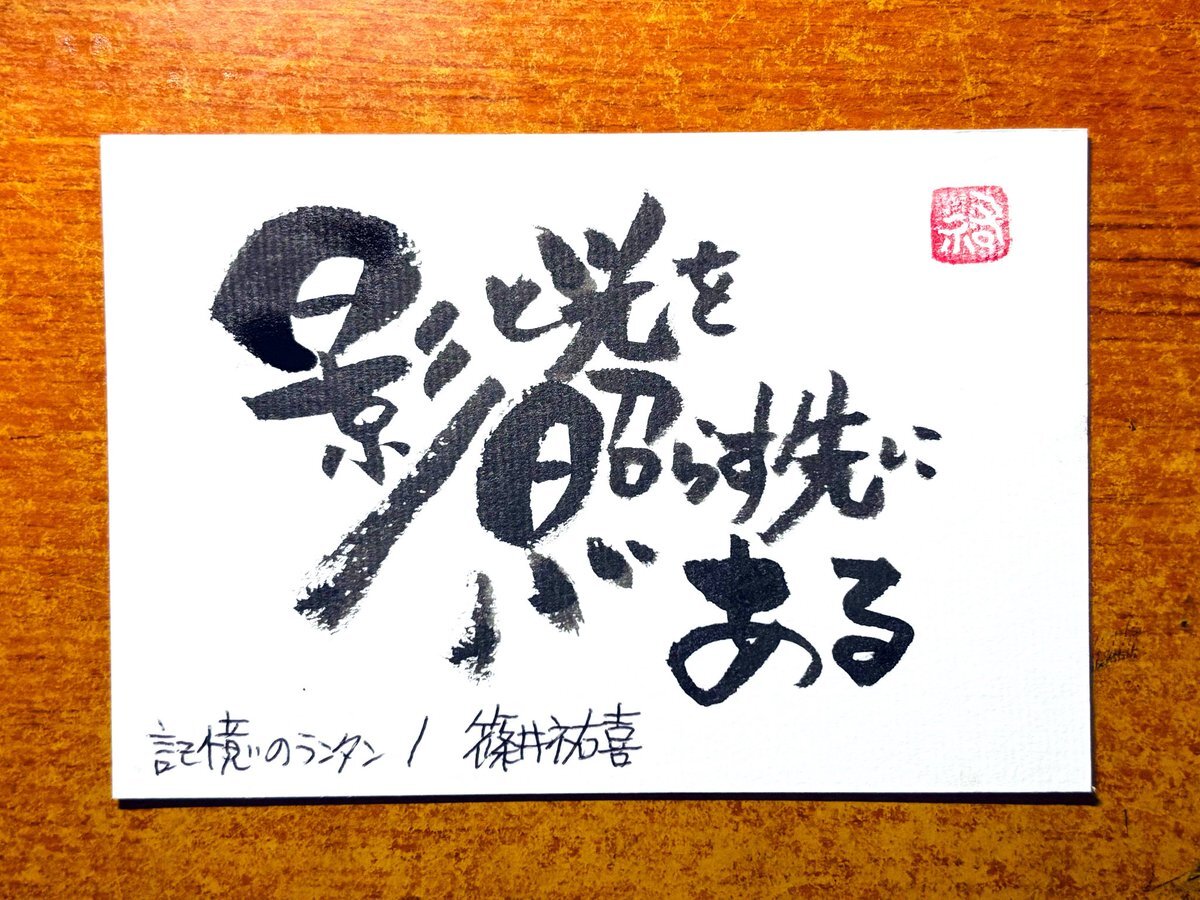 影と光を
照らす先に
ある
記憶のランタン / 篠井祐喜